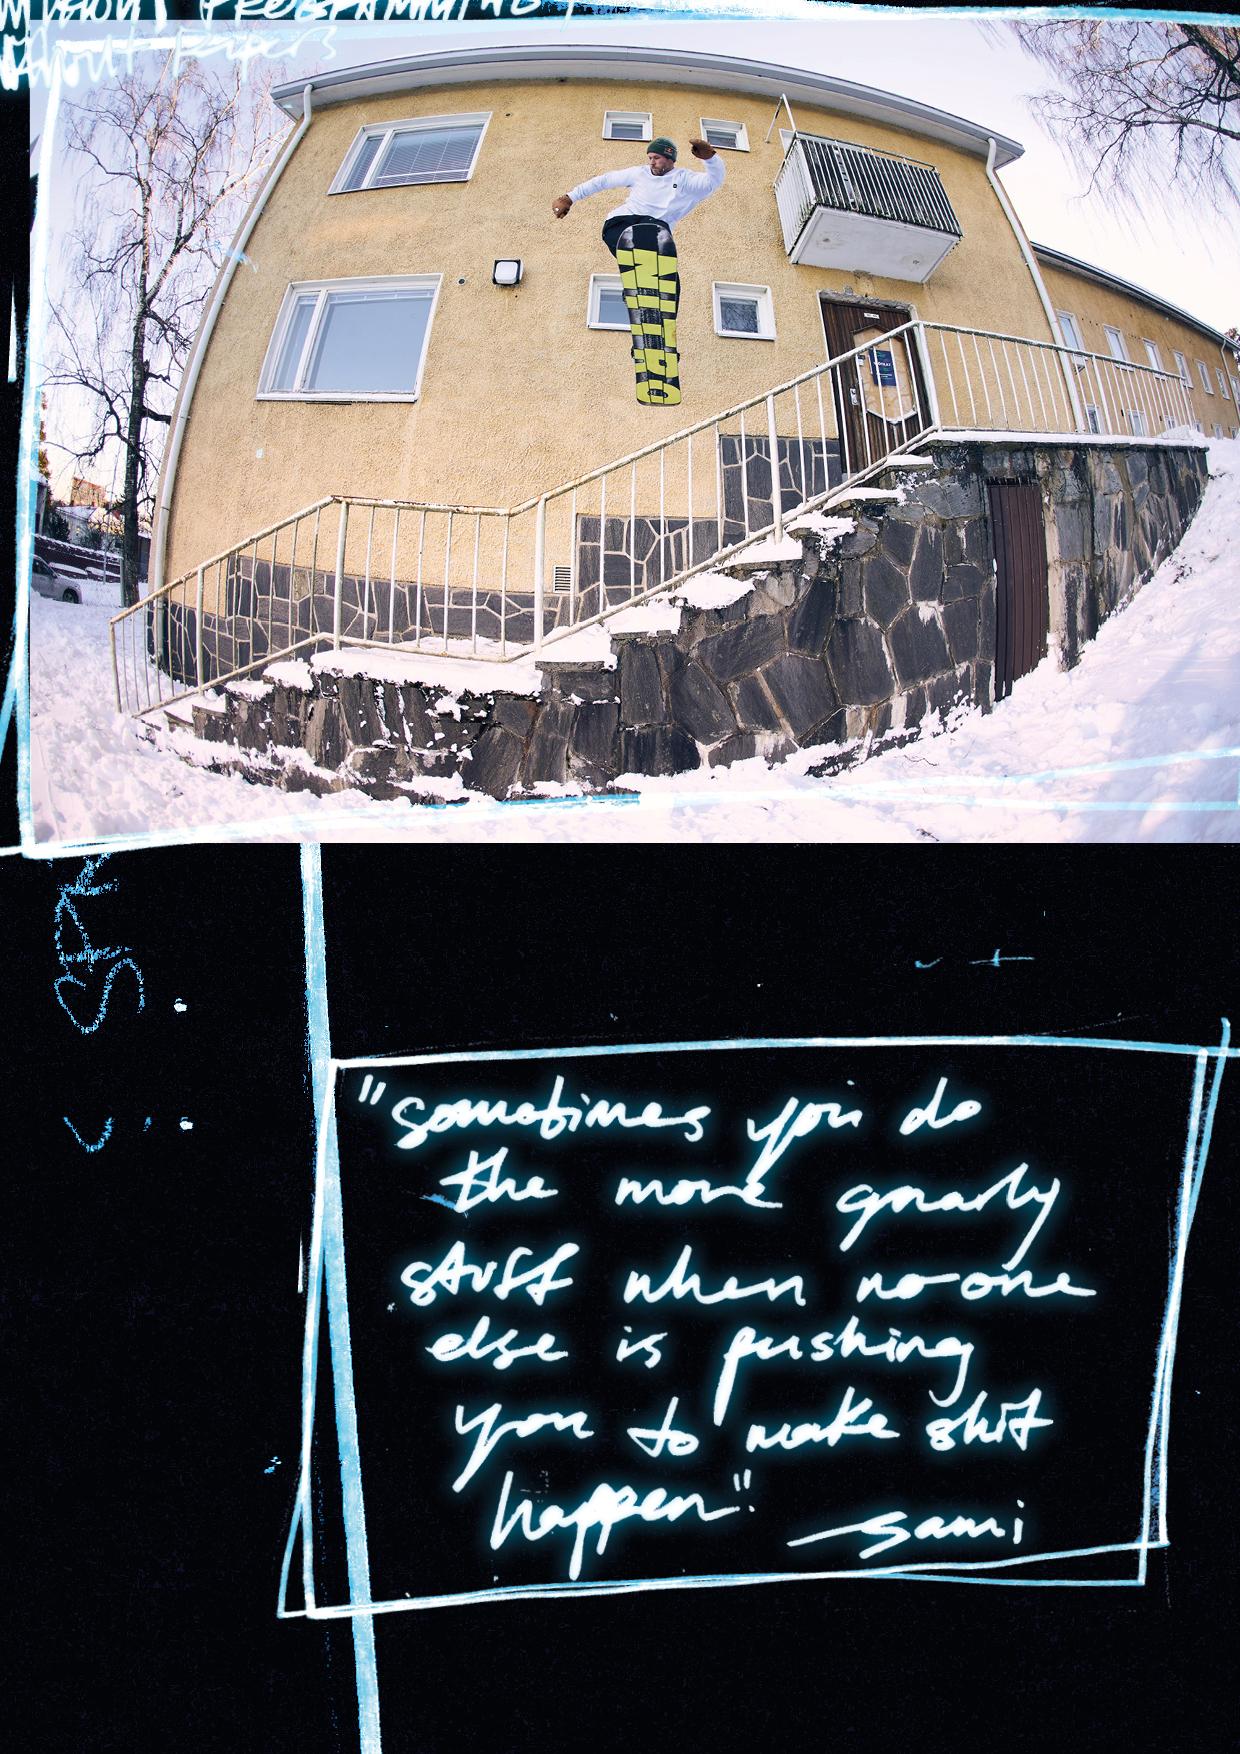 PROGRAMMING
about papers
NITRO
"sometimes you do
the more gnarly
stuff when no one
else is pushing
you to make shit
happen"
—sami